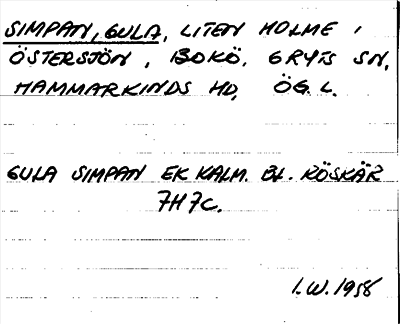 SIMPAN, GULA, LITEN HOLME I
ÖSTERSJÖN, BOKÖ, GRYTS SN,
HAMMARKINDS HD, ÖG. L.
GULA SIMPAN EK KALM. BL. RÖSKÄR
7H7C.
I.W. 1958